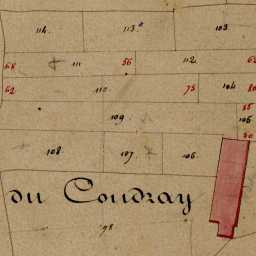 114. 113. 103.
68 111 56 112
62 110 75 104 80
109. 85
105
108. 107. 106. 90
du Coudray
98